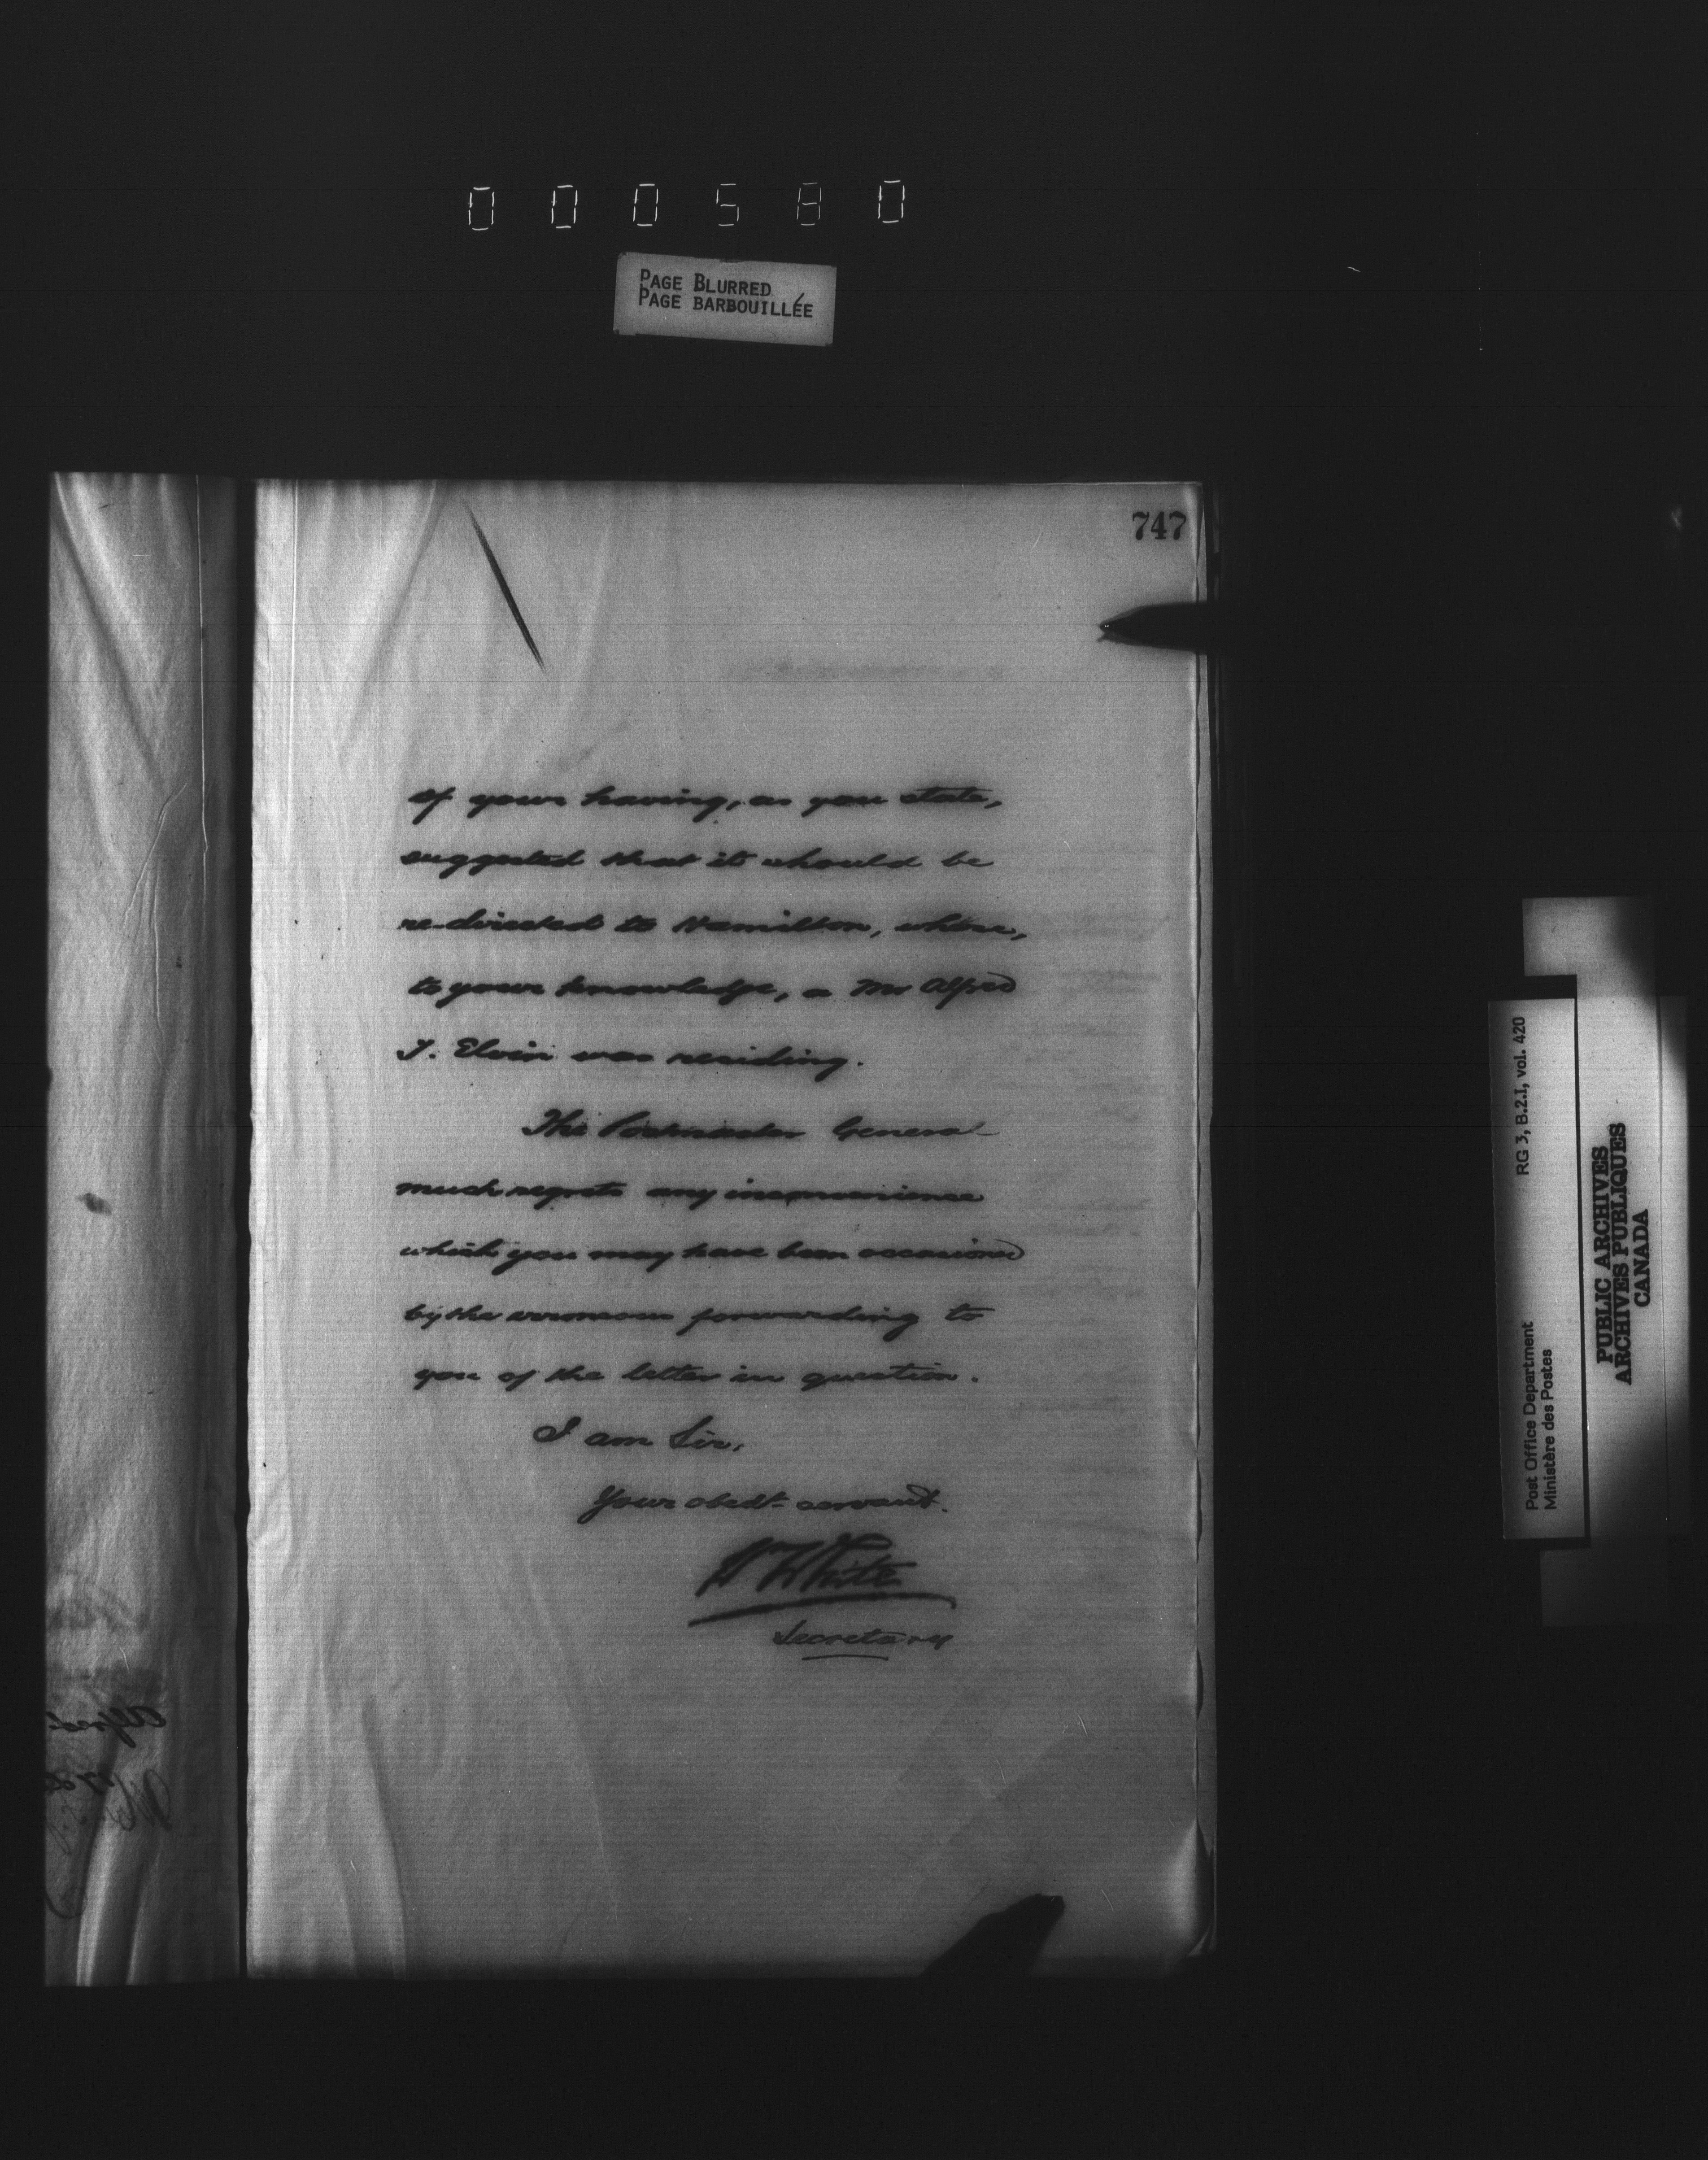 000580
PAGE BLURRED
PAGE BARBOUILLÉE
747
of your having, as you state,
suggested that it should be
re-directed to Hamilton, where,
to your knowledge, a Mr Alfred
J. Elvin was residing.
The Postmaster General
much regrets any inconvenience
which you may have been occasioned
by the erroneous forwarding to
you of the letter in question.
I am Sir,
Your obedt servant.
W White
Secretary
Alfred
RG 3, B.2.I, vol. 420
Post Office Department
Ministère des Postes
PUBLIC ARCHIVES
ARCHIVES PUBLIQUES
CANADA